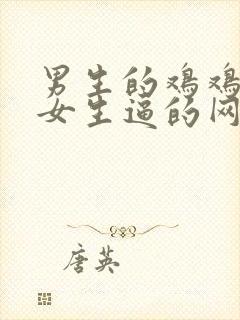 男生的鸡鸡
女生逼的网
唐英